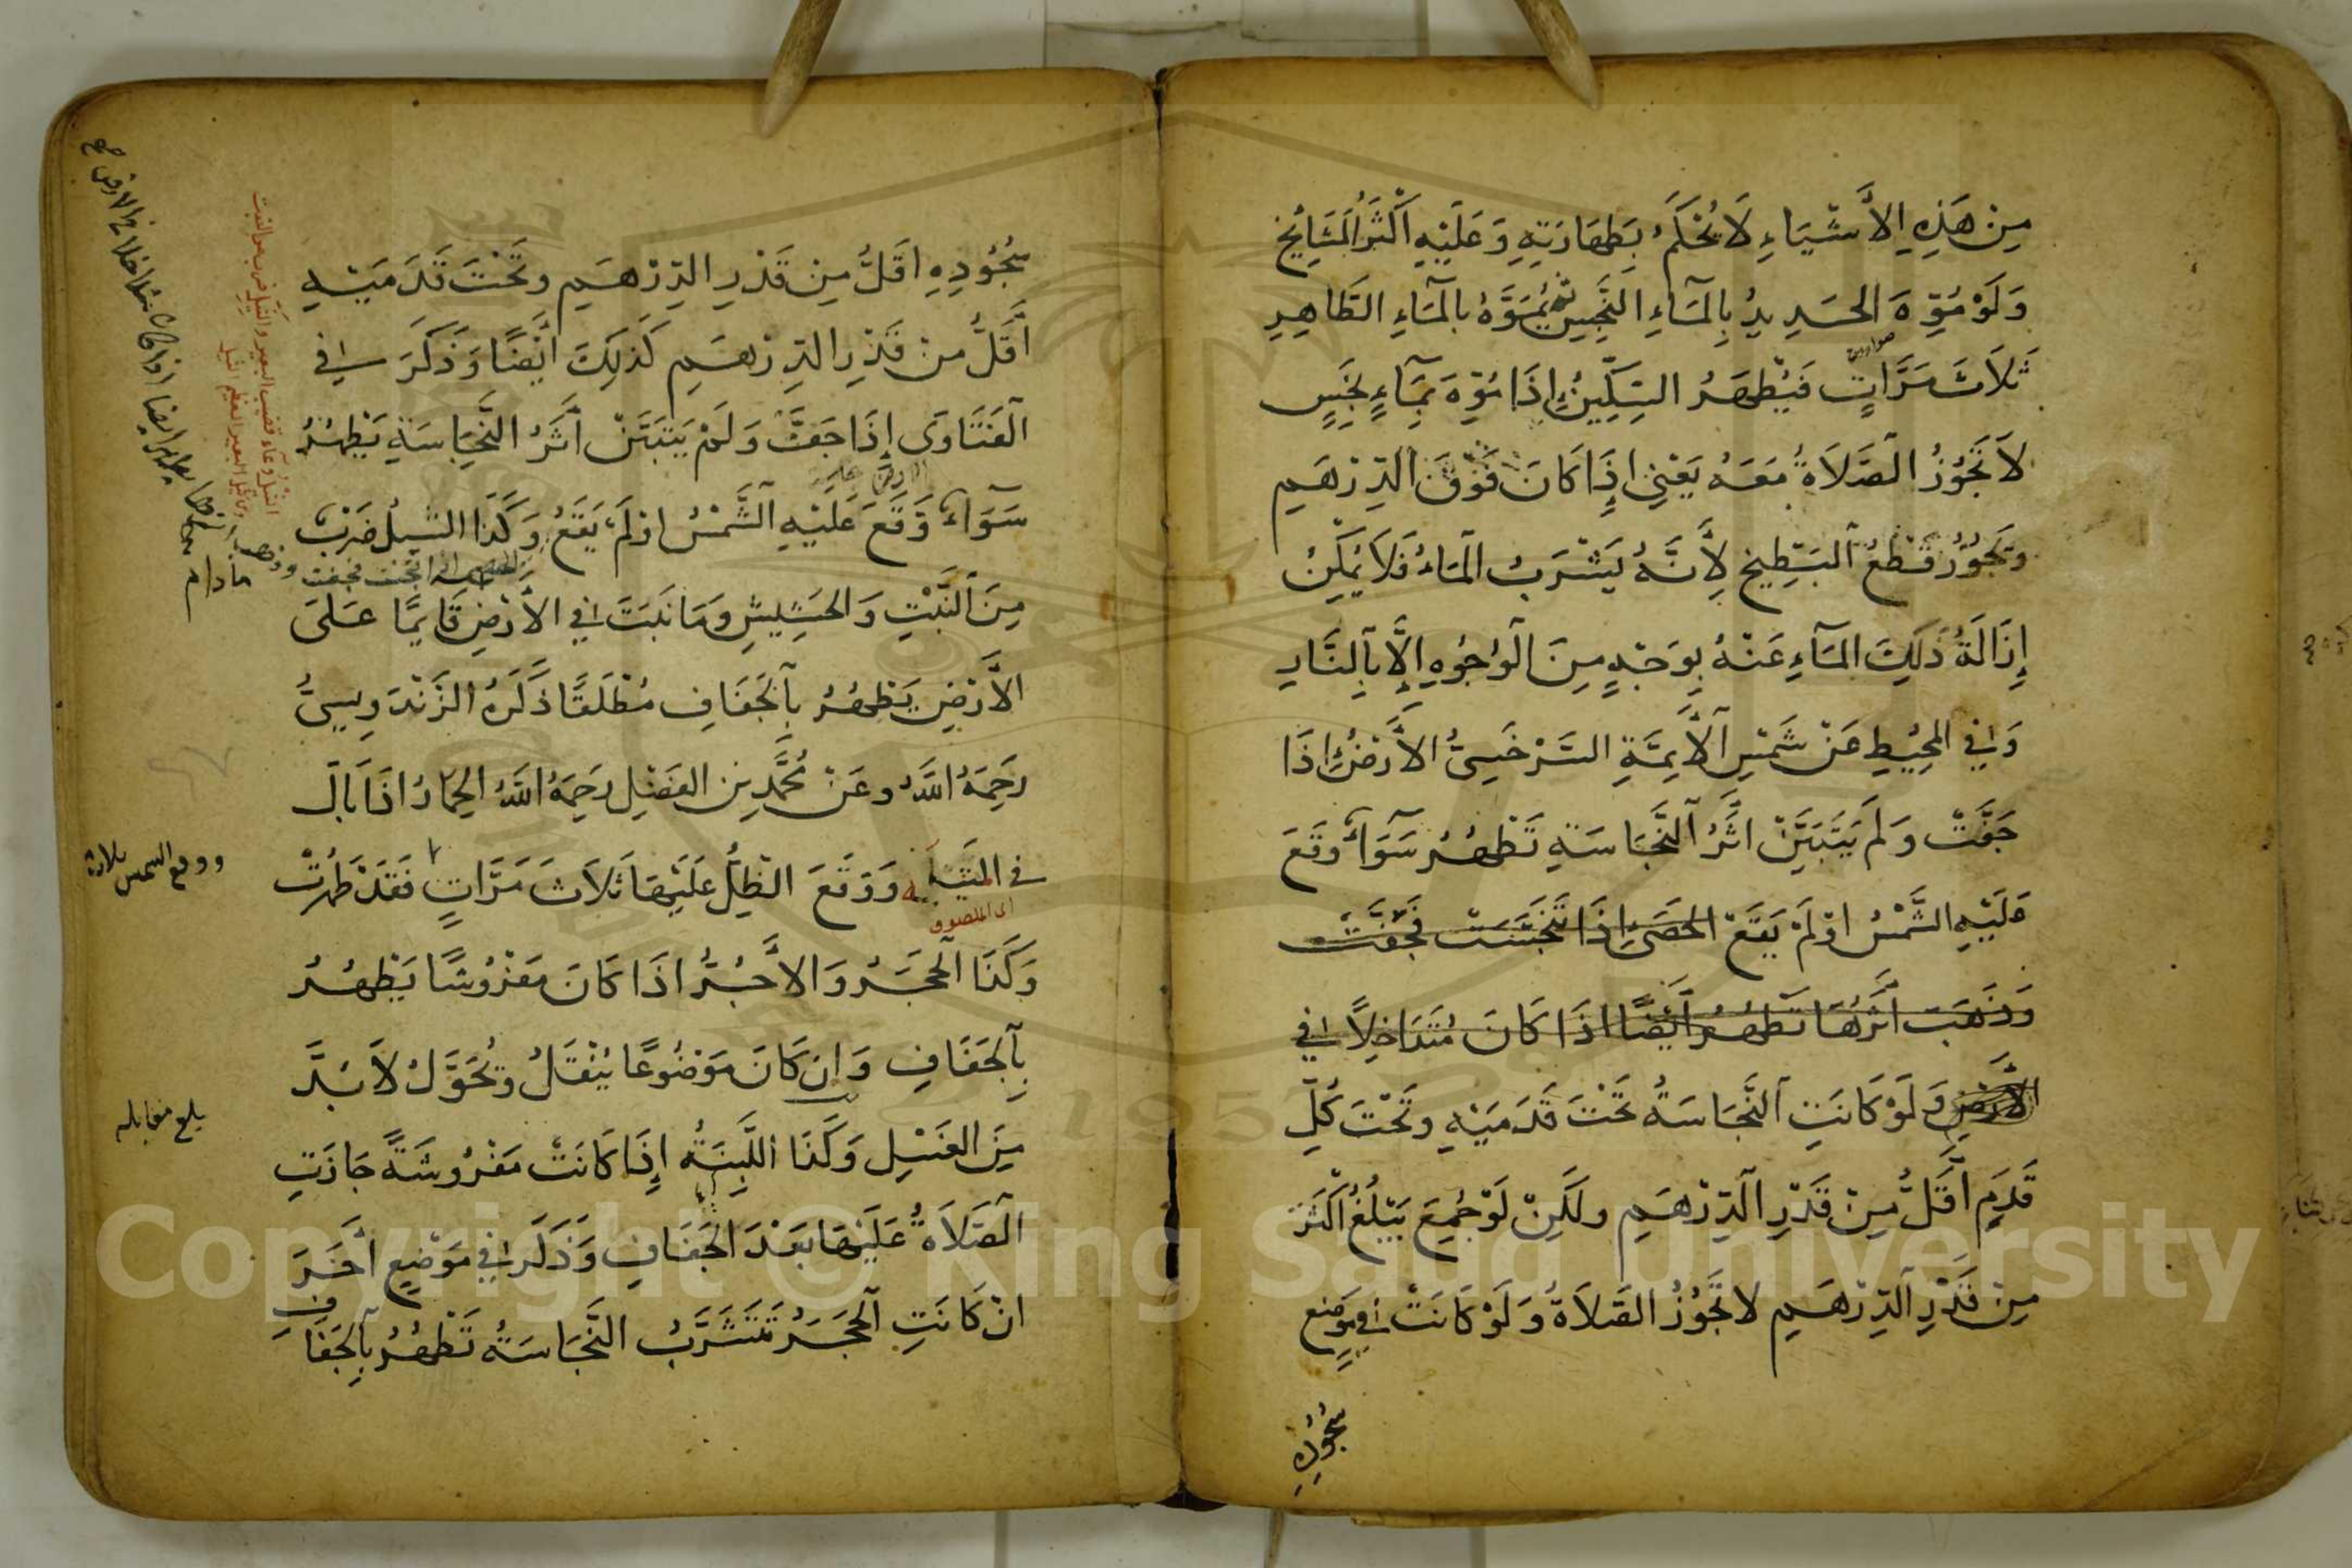 مِنْ هَذِهِ الأَشْيَاءِ لَا يُحْكَمُ بِطَهَارَتِهِ وَعَلَيْهِ أَكْثَرُ المَشَايِخِ
وَلَوْ مُوِّهَ الحَدِيدُ بِالمَاءِ النَّجِسِ ثم يُمَوَّهُ بِالمَاءِ الطَّاهِرِ
ثَلَاثَ مَرَّاتٍ فَيَطْهَرُ السِّكِّينُ إِذَا مُوِّهَ بِمَاءٍ نَجَسٍ
لَا تَجُوزُ الصَّلَاةُ مَعَهُ يَعْنِي إِذَا كَانَ فَوْقَ الدِّرْهَمِ
وَيَجُوزُ قَطْعُ البَطِّيخِ لِأَنَّهُ يَشْرَبُ المَاءَ فَلَا يُمْكِنُ
إِزَالَةُ ذَلِكَ المَاءِ عَنْهُ بِوَجْهٍ مِنَ الوُجُوهِ إِلَّا بِالنَّارِ
وَفِي المُحِيطِ عَنْ شَمْسِ الأَيِمَّةِ السَّرْخَسِيِّ الأَرْضُ إِذَا
جَفَّتْ وَلَمْ يَتَبَيَّنْ أَثَرُ النَّجَاسَةِ تَطْهُرُ سَوَاءٌ وَقَعَ
عَلَيْهِ الشَّمْسُ اوْ لَمْ يَقَعْ الحَصَى إِذَا تَنَجَّسَتْ فَجَفَّتْ
وَذَهَبَتْ أَثَرُهَا تَطْهُرُ أَيْضًا اذَا كَانَ مُتَدَاخِلًا فِي
الأَرْضِ وَلَوْ كَانَتِ النَّجَاسَةُ تَحْتَ قَدَمَيْهِ وَتَحْتَ كُلِّ
قَدَمٍ أَقَلُّ مِنْ قَدْرِ الدِّرْهَمِ وَلَكِنْ لَوْ جُمِعَ يَبْلُغُ أَكْثَرَ
مِنْ قَدْرِ الدِّرْهَمِ لَا تَجُوزُ الصَّلَاةُ وَلَوْ كَانَتْ فِي مَوْضِعِ
سُجُودِهِ
سُجُودِهِ اقَلُّ مِنْ قَدْرِ الدِّرْهَمِ وَتَحْتَ قَدَمَيْهِ
أَقَلُّ مِنْ قَدْرِ الدِّرْهَمِ كَذَلِكَ أَيْضًا وَذَكَرَ فِي
الفَتَاوَى إِذَا جَفَّتْ وَلَمْ يَتَبَيَّنْ أَثَرُ النَّجَاسَةِ يَطْهُرُ
سَوَاءٌ وَقَعَ عَلَيْهِ الشَّمْسُ اوْ لَمْ يَقَعُ وَكَذَا الثيلُ ضَرْبٌ
مِنَ النَّبْتِ وَالحَشِيشِ وَمَا نَبَتَ فِي الأَرْضِ قَايِمًا عَلَى
الأَرْضِ يَطْهُرُ بِالجَفَافِ مُطْلَقًا ذَكَرَهُ الزَّنْدَوِيسِيُّ
رَحِمَهُ اللَّهُ وَعَنْ مُحَمَّدِ بْنِ الفَضْلِ رَحِمَهُ اللَّهُ الحِمَارُ اذَا بَالَ
فِي المَثَابَةِ وَوَقَعَ الظِّلُّ عَلَيْهَا ثَلَاثَ مَرَّاتٍ فَقَدْ طَهُرَتْ
وَكَذَا الحَجَرُ وَالأَجُرُّ اذَا كَانَ مَفْرُوشًا يَطْهُرُ
بِالجَفَافِ وَإِنْ كَانَ مَوْضُوعًا يُنْقَلُ وَيُحَوَّلُ لَا بُدَّ
مِنَ الغَسْلِ وَكَذَا اللَّبِنَةُ إِذَا كَانَتْ مَفْرُوشَةً جَازَتِ
الصَّلَاةُ عَلَيْهَا بَعْدَ الجَفَافِ وَذَكَرَ فِي مَوْضِعٍ أخَرَ
انْ كَانَتِ الحَجَرُ تَتَشَرَّبُ النَّجَاسَةَ تَطْهُرُ بِالجَفَافِ
ووقع الشمس ثلاثة
بلغ مقابلة
مادام
Copyright © King Saud University
1957